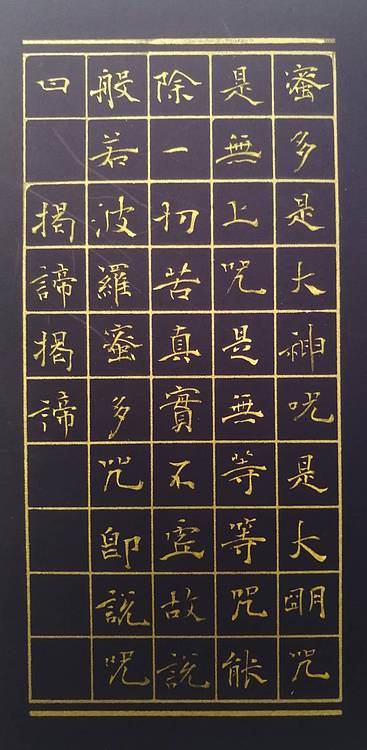 蜜多是大神呪是大朙咒
是無上咒是無等等咒能
除一切苦真實不虛故說
般若波羅蜜多咒卽說呪
曰 揭諦揭諦